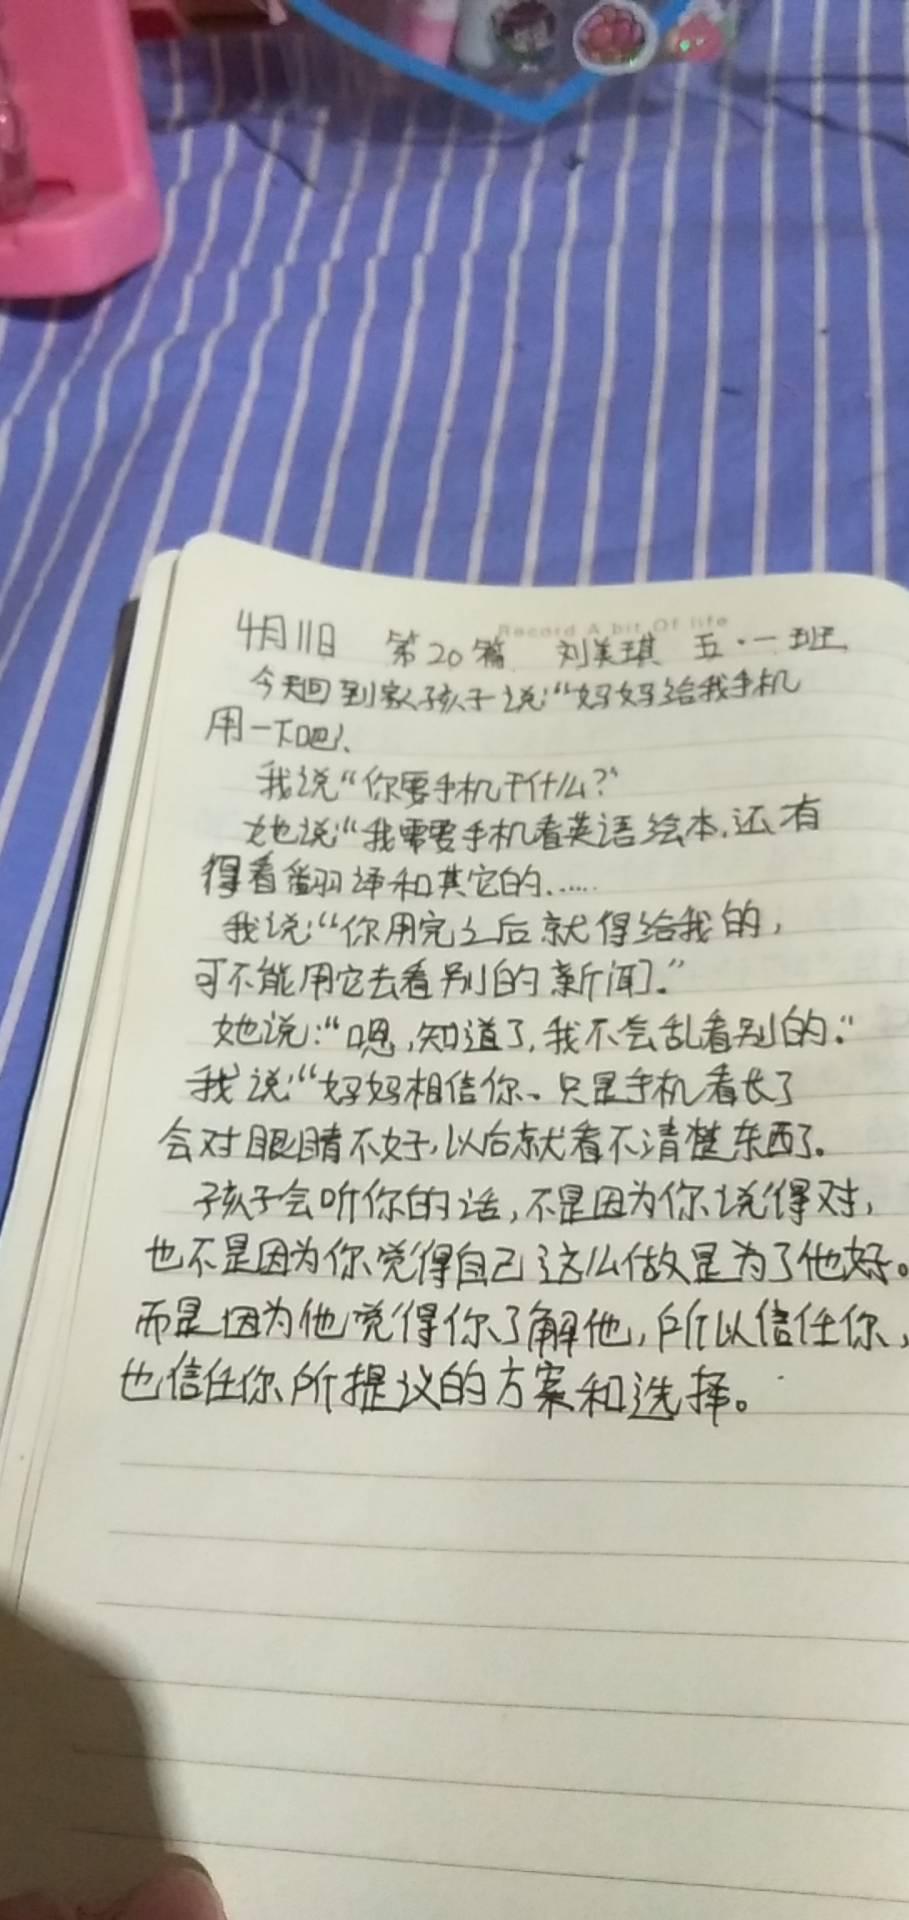 Record A bit Of life
4月11日 第20篇 刘美琪 五·一班
今天回到家孩子说:“妈妈给我手机
用一下吧!
我说“你要手机干什么?”
她说:“我需要手机看英语绘本,还有
得看翻译和其它的……
我说:“你用完之后就得给我的,
可不能用它去看别的新闻。”
她说:“嗯,知道了,我不会乱看别的。”
我说:“妈妈相信你。只是手机看长了
会对眼睛不好,以后就看不清楚东西了。
孩子会听你的话,不是因为你说得对,
也不是因为你觉得自己这么做是为了他好。
而是因为他觉得你了解他,所以信任你,
也信任你所提议的方案和选择。